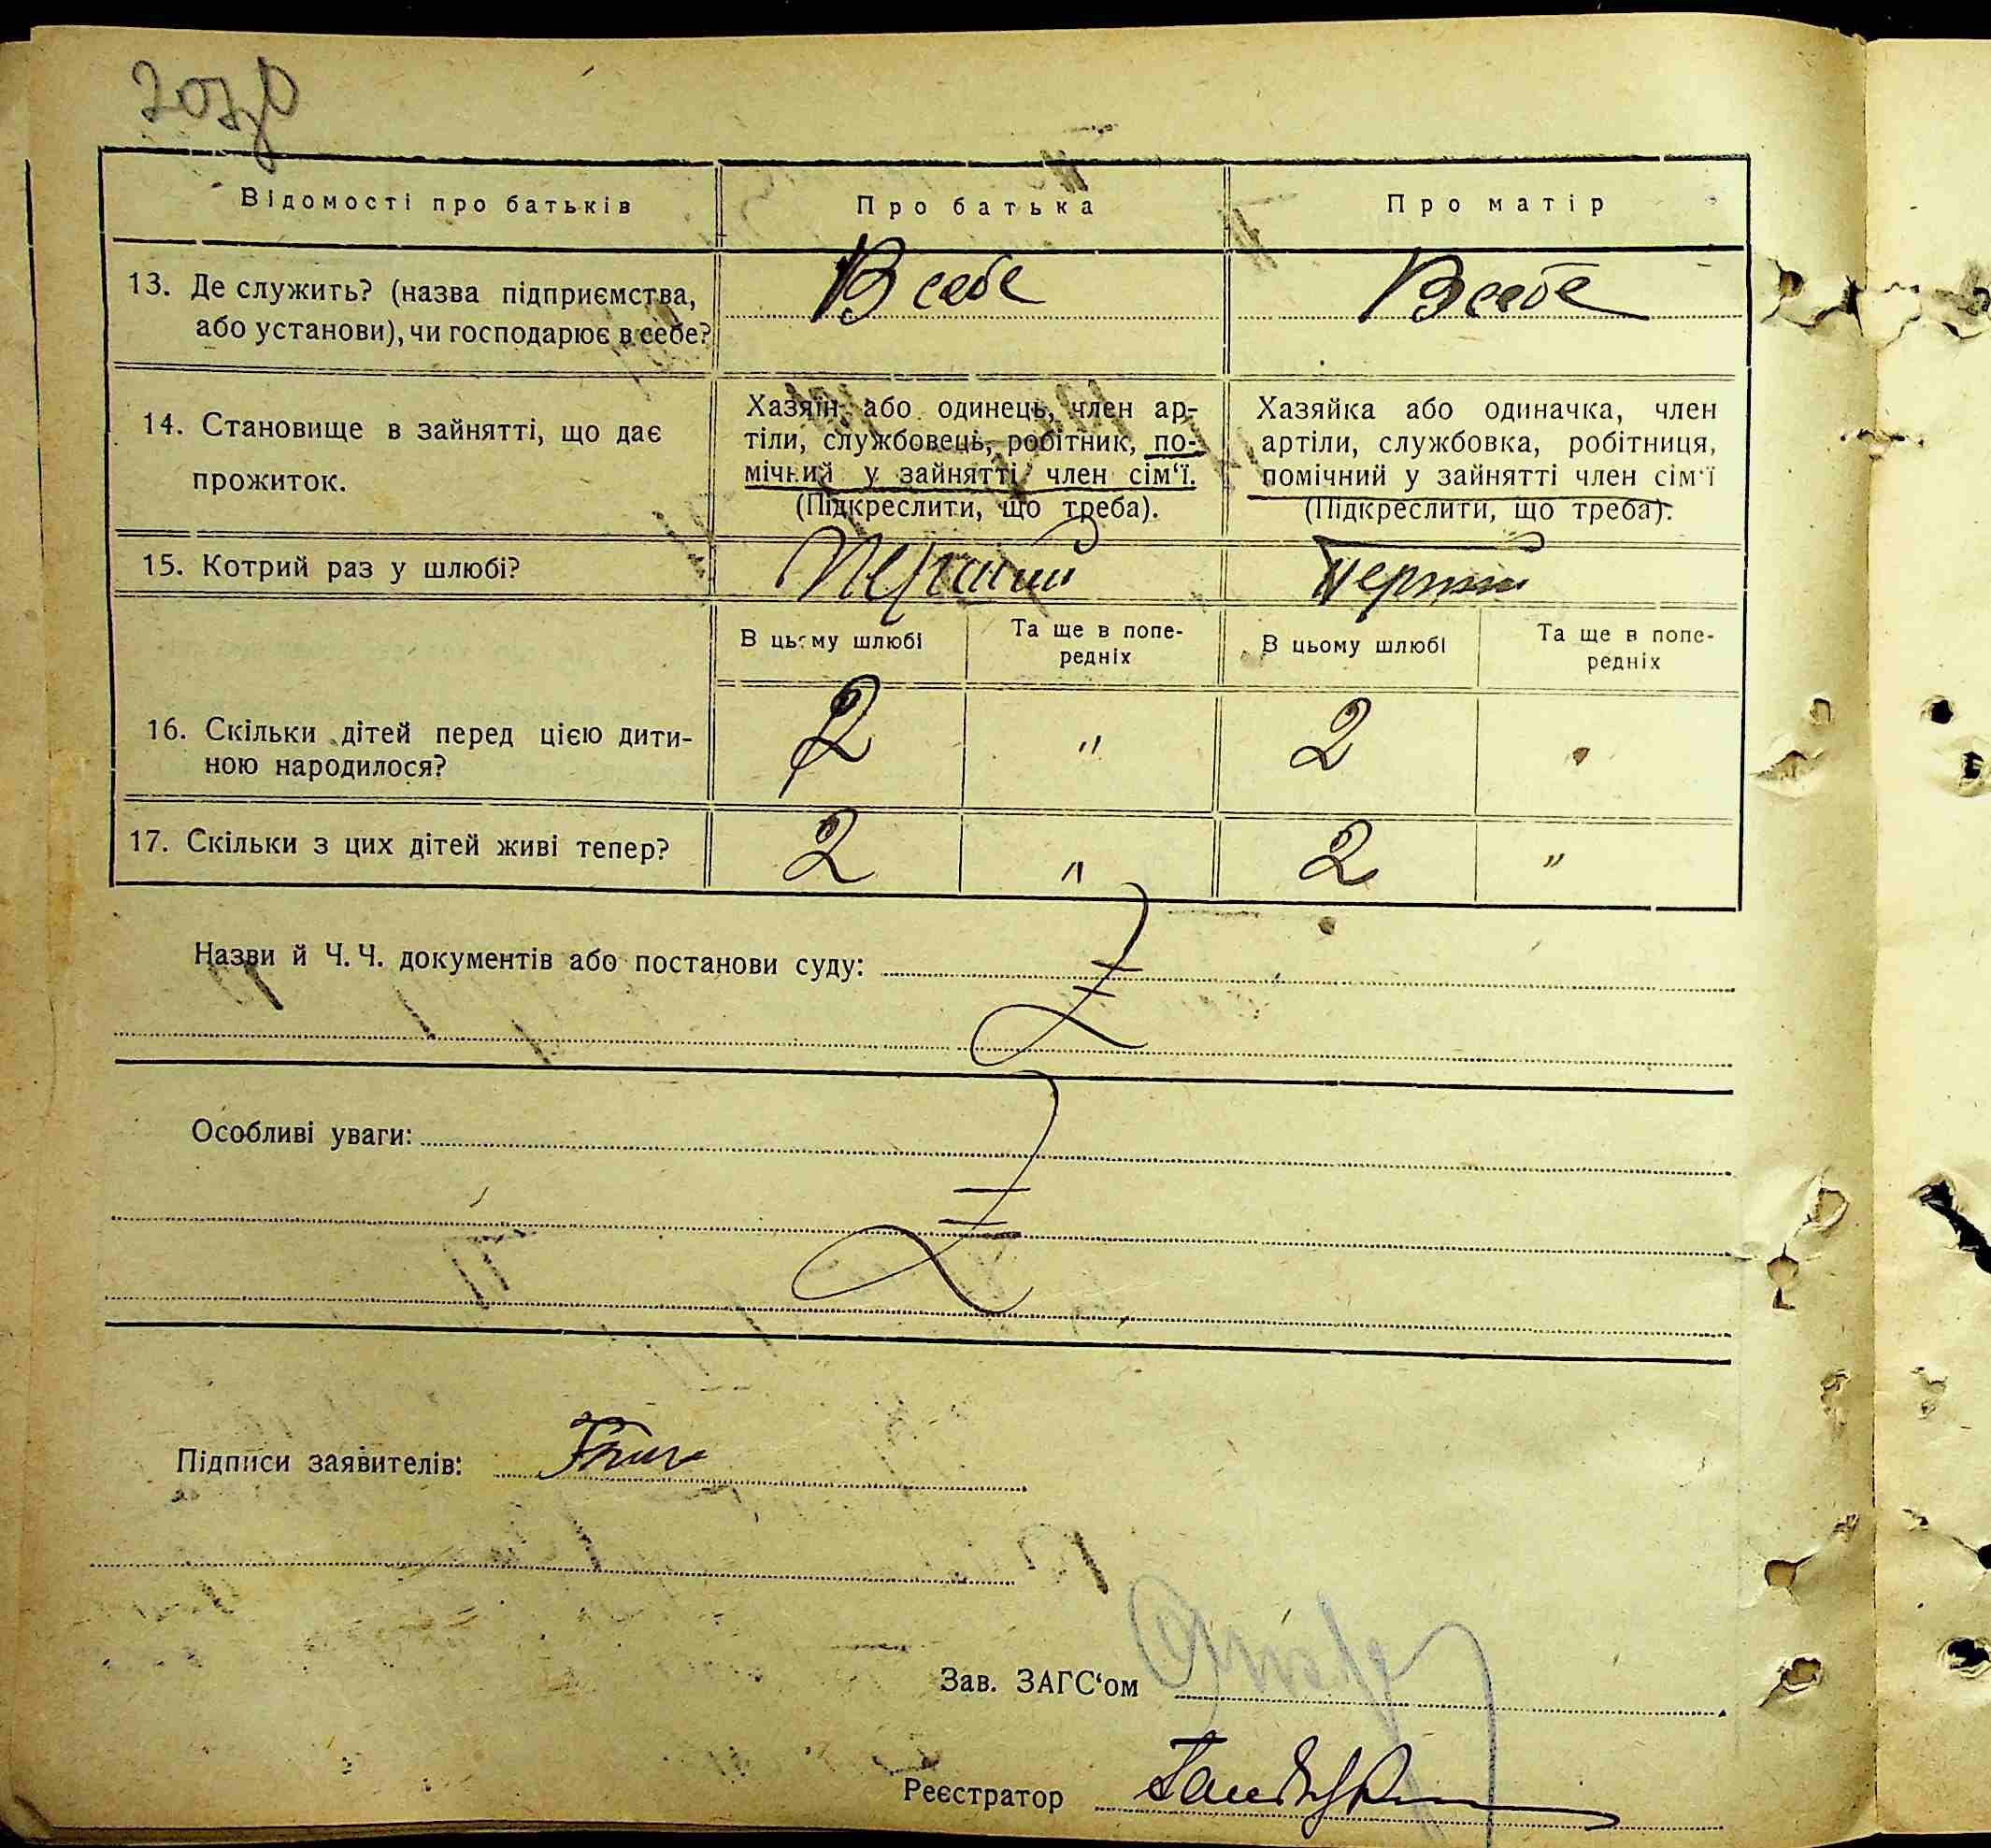 Відомості про батьків
Про батька
Про матір
13. Де служить? (назва підприємства,
або установи), чи господарює в себе?
В себе
В себе
14. Становище в зайнятті, що дає
прожиток.
Хазяїн або одинець, член ар-
тіли, службовець, робітник, по-
мічний у зайнятті член сім'ї.
(Підкреслити, що треба).
Хазяйка або одиначка, член
артіли, службовка, робітниця,
помічний у зайнятті член сім'ї
(Підкреслити, що треба).
15. Котрий раз у шлюбі?
Перший
Перший
В цьому шлюбі
Та ще в попе-
редніх
В цьому шлюбі
Та ще в попе-
редніх
16. Скільки дітей перед цією дити-
ною народилося?
2
"
2
17. Скільки з цих дітей живі тепер?
2
"
2
"
Назви й Ч. Ч. документів або постанови суду:
Особливі уваги:
Підписи заявителів:
Зав. ЗАГС'ом
Реєстратор